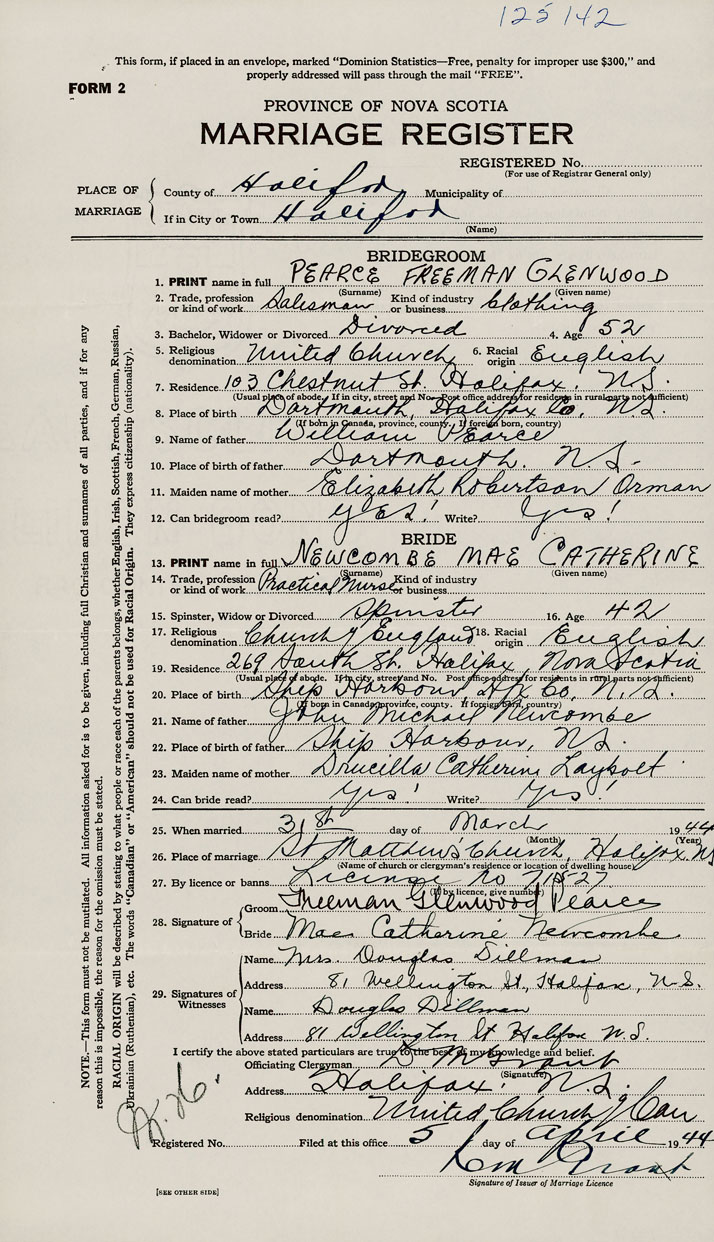 125142
This form, if placed in an envelope, marked "Dominion Statistics—Free, penalty for improper use $300," and
properly addressed will pass through the mail "FREE".
FORM 2
PROVINCE OF NOVA SCOTIA
MARRIAGE REGISTER
REGISTERED No.
(For use of Registrar General only)
PLACE OF MARRIAGE
County of Halifax Municipality of
If in City or Town Halifax
(Name)
BRIDEGROOM
1. PRINT name in full PEARCE FREEMAN GLENWOOD
(Surname) (Given name)
2. Trade, profession or kind of work Salesman Kind of industry or business Clothing
3. Bachelor, Widower or Divorced Divorced 4. Age 52
5. Religious denomination United Church 6. Racial origin English
7. Residence 103 Chestnut St. Halifax, N.S.
(Usual place of abode. If in city, street and No. Post office address for residents in rural parts not sufficient)
8. Place of birth Dartmouth, Halifax Co, N.S.
(If born in Canada, province, county. If foreign born, country)
9. Name of father William Pearce
10. Place of birth of father Dartmouth. N.S.
11. Maiden name of mother Elizabeth Robertson Orman
12. Can bridegroom read? yES! Write? Yes!
BRIDE
13. PRINT name in full NEWCOMBE MAE CATHERINE
(Surname) (Given name)
14. Trade, profession or kind of work Practical Nurse Kind of industry or business
15. Spinster, Widow or Divorced Spinster 16. Age 42
17. Religious denomination Church of England 18. Racial origin English
19. Residence 269 South St. Halifax, Nova Scotia
(Usual place of abode. If in city, street and No. Post office address for residents in rural parts not sufficient)
20. Place of birth Ship Harbour Hfx Co, N.S.
(If born in Canada, province, county. If foreign born, country)
21. Name of father John Michael Newcombe
22. Place of birth of father Ship Harbour, N.S.
23. Maiden name of mother Drucilla Catherine Laybolt
24. Can bride read? Yes! Write? Yes!
25. When married 31st day of March 1944
(Month) (Year)
26. Place of marriage St Matthew's Church, Halifax NS
(Name of church or clergyman's residence or location of dwelling house)
27. By licence or banns License No 71527
(If by licence, give number)
28. Signature of
Groom Freeman Glenwood Pearce
Bride Mae Catherine Newcombe
29. Signatures of Witnesses
Name Mrs. Douglas Dillman
Address 81 Wellington St, Halifax, N.S.
Name Douglas Dillman
Address 81 Wellington St Halifax N.S.
I certify the above stated particulars are true to the best of my knowledge and belief.
Officiating Clergyman Grant
(Signature)
Address Halifax, N.S.
Religious denomination United Church of Can
Registered No. Filed at this office 5 day of April 1944
Grant
Signature of Issuer of Marriage Licence
[SEE OTHER SIDE]
NOTE.—This form must not be mutilated. All information asked for is to be given, including full Christian and surnames of all parties, and if for any
reason this is impossible, the reason for the omission must be stated.
RACIAL ORIGIN will be described by stating to what people or race each of the parents belongs, whether English, Irish, Scottish, French, German, Russian,
Ukrainian (Ruthenian), etc. The words "Canadian" or "American" should not be used for Racial Origin. They express citizenship (nationality).